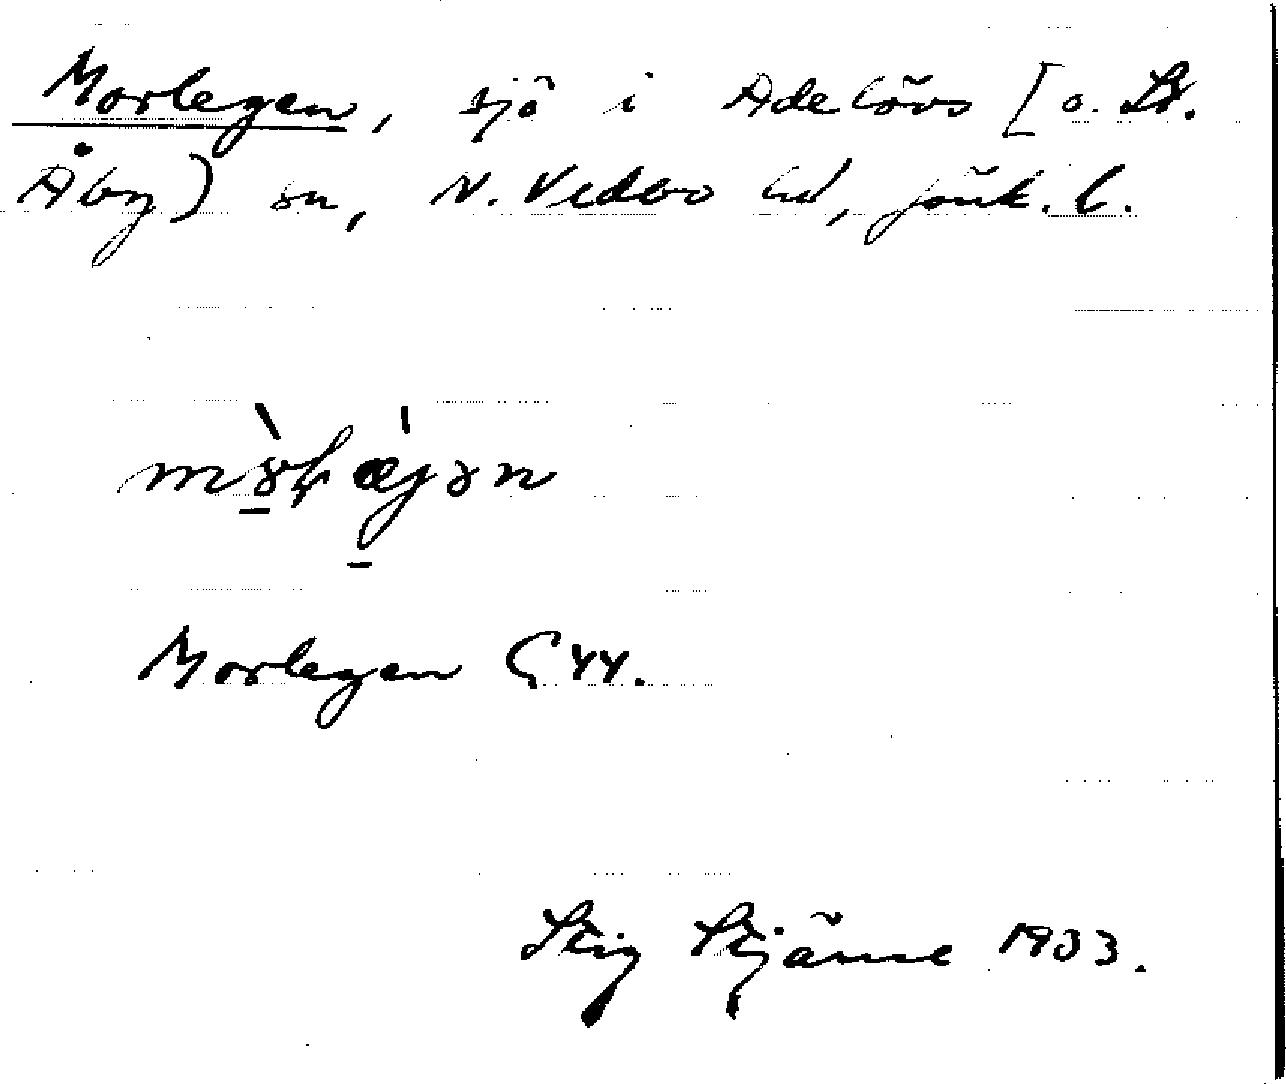 Morlegen, sjö i Adelövs [o. St.
Åby) sn, N. Vedbo hd, Jönk. l.
Morlegen G 44.
Stig Stjärne 1933.